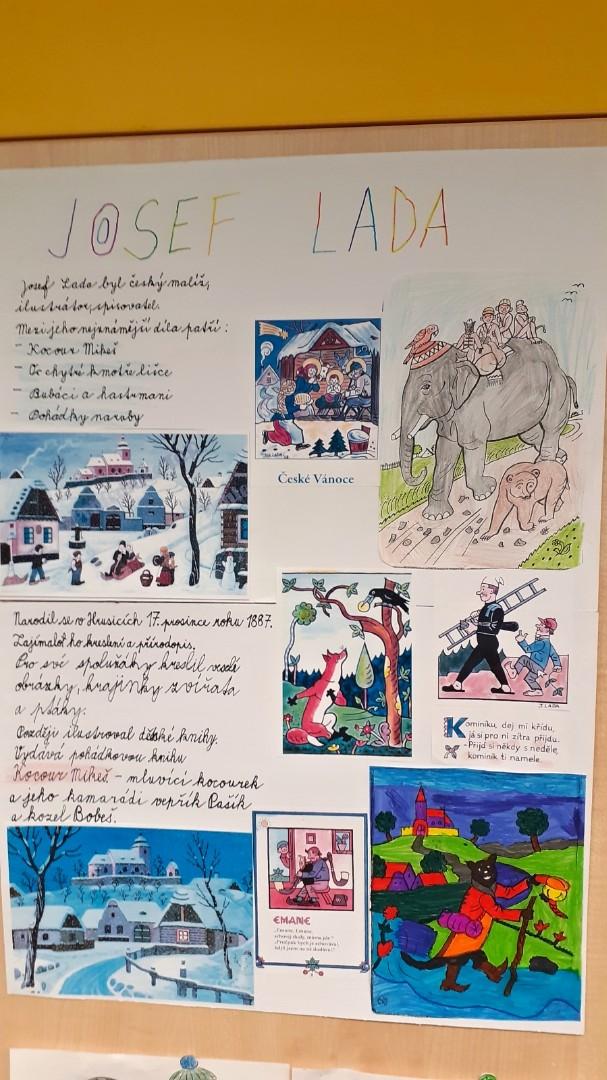 JOSEF LADA
Josef Lada byl český malíř,
ilustrátor, spisovatel.
Mezi jeho nejznámější díla patří:
- Kocour Mikeš
- O chytré kmotře lišce
- Bubáci a hastrmani
- Pohádky naruby
České Vánoce
Narodil se v Hrusicích 17. prosince roku 1887.
Zajímalo ho kreslení a přírodopis.
Pro své spolužáky kreslil
obrázky, krajinky zvířata
a ptáky.
Později ilustroval dětské knihy.
Vydává pohádkovou knihu
Kocour Mikeš - mluvící kocourek
a jeho kamarádi vepřík Pašík
a kozel Bobeš.
J. LADA
Kominíku, dej mi křídu,
já si pro ni zítra přijdu.
-Přijď si někdy s neděle,
kominík ti namele.
EMANE